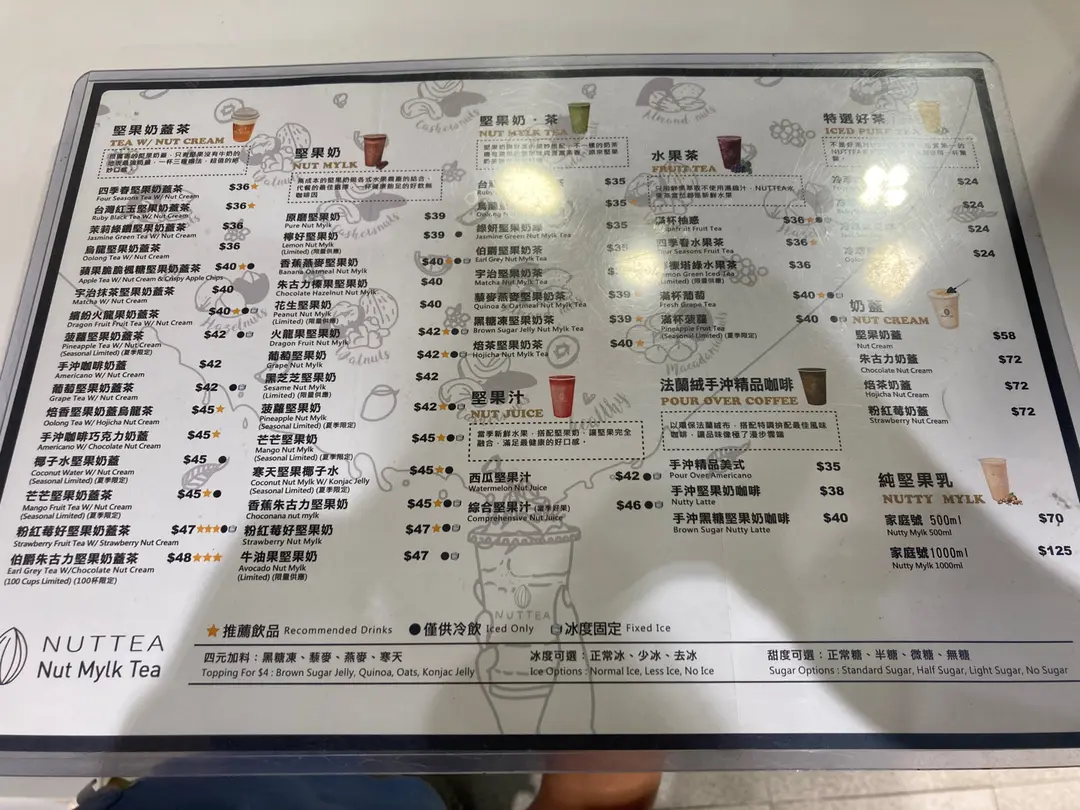 堅果奶蓋茶
TEA W/ NUT CREAM
四季春堅果奶蓋茶 $36★
Four Seasons Tea W/ Nut Cream
台灣紅玉堅果奶蓋茶 $36★
Ruby Black Tea W/ Nut Cream
茉莉綠堅果奶蓋茶 $36
Jasmine Green Tea W/ Nut Cream
烏龍堅果奶蓋茶 $36
Oolong Tea W/ Nut Cream
蘋果脆脆楓糖堅果奶蓋茶 $40★●
Apple Tea W/ Nut Cream & Crispy Apple Chips
宇治抹茶堅果奶蓋茶 $40
Matcha W/ Nut Cream
繽紛火龍果奶蓋茶 $40★●
Dragon Fruit Fruit Tea W/ Nut Cream
菠蘿堅果奶蓋茶 $42 ●
Pineapple Tea W/ Nut Cream
(Seasonal Limited) (夏季限定)
手沖咖啡奶蓋 $42
Americano W/ Nut Cream
葡萄堅果奶蓋茶 $42 ●
Grape Tea W/ Nut Cream
焙香堅果奶蓋烏龍茶 $45★
Oolong Tea W/ Hojicha Nut Cream
手沖咖啡巧克力奶蓋 $45★
Americano W/ Chocolate Nut Cream
椰子水堅果奶蓋 $45 ●
Coconut Water W/ Nut Cream
(Seasonal Limited) (夏季限定)
芒芒堅果奶蓋茶 $45★●
Mango Fruit Tea W/ Nut Cream
(Seasonal Limited) (夏季限定)
粉紅莓好堅果奶蓋茶 $47★★★●
Strawberry Fruit Tea W/ Strawberry Nut Cream
伯爵朱古力堅果奶蓋茶 $48★★★
Earl Grey Tea W/Chocolate Nut Cream
(100 Cups Limited) (100杯限定)
堅果奶
NUT MYLK
原磨堅果奶 $39
Pure Nut Mylk
檸好堅果奶 $39 ●
Lemon Nut Mylk
(Limited) (限量供應)
香蕉燕麥堅果奶 $40★●
Banana Oatmeal Nut Mylk
朱古力榛果堅果奶 $40
Chocolate Hazelnut Nut Mylk
花生堅果奶 $40
Peanut Nut Mylk
(Limited) (限量供應)
火龍果堅果奶 $42★●
Dragon Fruit Nut Mylk
葡萄堅果奶 $42★●
Grape Nut Mylk
黑芝芝堅果奶 $42
Sesame Nut Mylk
(Limited) (限量供應)
菠蘿堅果奶 $42★●
Pineapple Nut Mylk
(Seasonal Limited) (夏季限定)
芒芒堅果奶 $45★●
Mango Nut Mylk
(Seasonal Limited) (夏季限定)
寒天堅果椰子水 $45★●
Coconut Nut Mylk W/ Konjac Jelly
(Seasonal Limited) (夏季限定)
香蕉朱古力堅果奶 $45★●
Choconana nut mylk
粉紅莓好堅果奶 $47★●
Strawberry Nut Mylk
牛油果堅果奶 $47 ●
Avocado Nut Mylk
(Limited) (限量供應)
堅果奶．茶
NUT MYLK TEA
$35
$35
綠妍堅果奶綠 $35
Jasmine Green Nut Mylk Tea
伯爵堅果奶茶 $35
Earl Grey Nut Mylk Tea
宇治堅果奶茶
Matcha Nut Mylk Tea
藜麥燕麥堅果奶茶 $39
Quinoa & Oatmeal Nut Mylk Tea
黑糖凍堅果奶茶 $39★
Brown Sugar Jelly Nut Mylk Tea
焙茶堅果奶茶 $40★
Hojicha Nut Mylk Tea
堅果汁
NUT JUICE
當季新鮮水果，搭配堅果奶，讓堅果完全
融合，滿足最健康的好口感。
西瓜堅果汁 $42●
Watermelon Nut Juice
綜合堅果汁 (當季好果) $46●
Comprehensive Nut Juice
水果茶
FRUIT TEA
滿杯柚惑 $36★
Grapefruit Fruit Tea
四季春水果茶 $36★
Four Seasons Fruit Tea
檸檬塔綠水果茶 $36
滿杯葡萄 $40★●
Fresh Grape Tea
滿杯菠蘿 $40●
Pineapple Fruit Tea
(Seasonal Limited) (夏季限定)
法蘭絨手沖精品咖啡
POUR OVER COFFEE
以環保法蘭絨布，搭配特調拚配最佳風味
咖啡，讓品味像極了漫步雲端
手沖精品美式 $35
Pour Over Americano
手沖堅果奶咖啡 $38
Nutty Latte
手沖黑糖堅果奶咖啡 $40
Brown Sugar Nutty Latte
特選好茶
ICED PURE TEA
$24
$24
$24
$24
奶蓋
NUT CREAM
堅果奶蓋 $58
Nut Cream
朱古力奶蓋 $72
Chocolate Nut Cream
焙茶奶蓋 $72
Hojicha Nut Cream
粉紅莓奶蓋 $72
Strawberry Nut Cream
純堅果乳
NUTTY MYLK
家庭號 500ml $70
Nutty Mylk 500ml
家庭號1000ml $125
Nutty Mylk 1000ml
NUTTEA
NUTTEA
Nut Mylk Tea
★推薦飲品 Recommended Drinks ●僅供冷飲 Iced Only 冰度固定 Fixed Ice
四元加料：黑糖凍、藜麥、燕麥、寒天
Topping For $4 : Brown Sugar Jelly, Quinoa, Oats, Konjac Jelly
冰度可選：正常冰、少冰、去冰
Ice Options : Normal Ice, Less Ice, No Ice
甜度可選：正常糖、半糖、微糖、無糖
Sugar Options : Standard Sugar, Half Sugar, Light Sugar, No Sugar